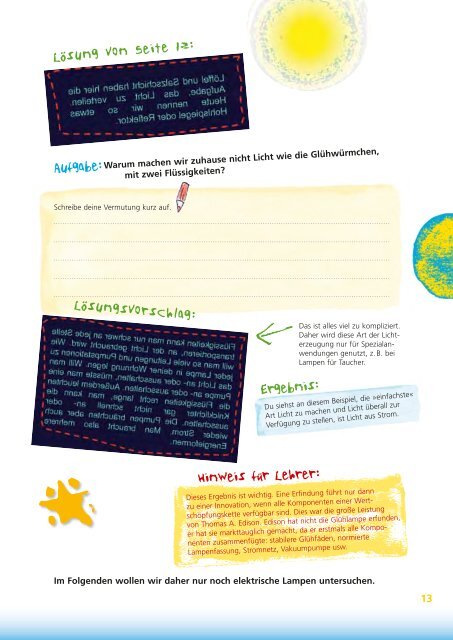 Lösung von Seite 12:
Löffel und Salzschicht haben hier die
Aufgabe, das Licht zu verteilen.
Heute nennen wir so etwas
Hohlspiegel oder Reflektor.
Aufgabe: Warum machen wir zuhause nicht Licht wie die Glühwürmchen,
mit zwei Flüssigkeiten?
Schreibe deine Vermutung kurz auf.
Lösungsvorschlag:
Flüssigkeiten kann man nur schwer an jede Stelle
transportieren, an der Licht gebraucht wird. Wie
will man so viele Leitungen und Pumpstationen zu
jeder Lampe in deiner Wohnung legen. Will man
das Licht an- oder ausschalten, müsste man eine
Pumpe an- oder ausschalten. Außerdem leuchten
die Flüssigkeiten noch lange, man kann die
Knicklichter gar nicht einmal an- oder
ausschalten. Die Pumpen bräuchten aber auch
wieder Strom. Man braucht also mehrere
Energieformen.
Das ist alles viel zu kompliziert.
Daher wird diese Art der Licht-
erzeugung nur für Spezialan-
wendungen genutzt, z. B. bei
Lampen für Taucher.
Ergebnis:
Du siehst an diesem Beispiel, die »einfachste«
Art Licht zu machen und Licht überall zur
Verfügung zu stellen, ist Licht aus Strom.
Hinweis für Lehrer:
Dieses Ergebnis ist wichtig. Eine Erfindung führt nur dann
zu einer Innovation, wenn alle Komponenten einer Wert-
schöpfungskette verfügbar sind. Dies war die große Leistung
von Thomas A. Edison. Edison hat nicht die Glühlampe erfunden,
er hat sie markttauglich gemacht, da er erstmals alle Kompo-
nenten zusammenfügte: stabilere Glühfäden, normierte
Lampenfassung, Stromnetz, Vakuumpumpe usw.
Im Folgenden wollen wir daher nur noch elektrische Lampen untersuchen.
13